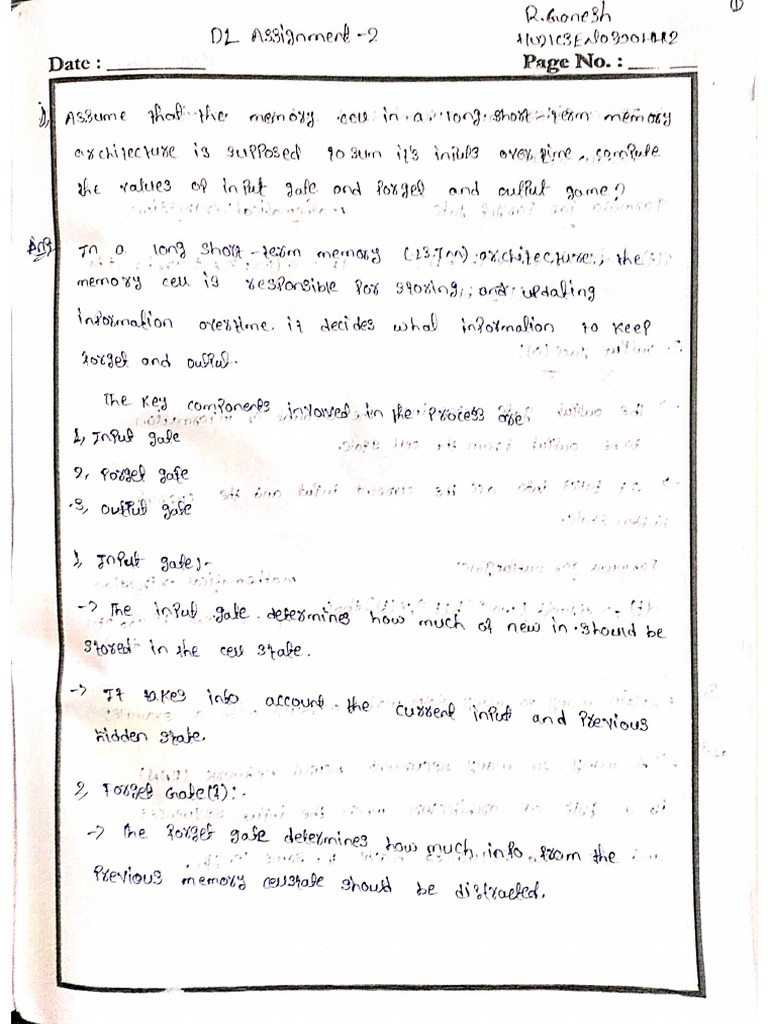 ①
R.Gonesh
DL Assignment -2
Date :
Page No. :
1, Assume that the memory cell in a long short-term memory
architecture is supposed to sum it's inputs over time, compute
the values of input gate and forget and output game?
Ans
In a long short-term memory architecture, the
memory cell is responsible for storing, and updating
information overtime. it decides what information to keep
forget and output.
The key components involved, in the process are.
1, Input gate
2, Forget gate
3, output gate
1, Input gate:-
-> The input gate determines how much of new in. should be
stored in the cell state.
-> It takes into account the current input and previous
hidden state.
2, Forget Gate(f):-
-> The forget gate determines how much info from the
previous memory cellstate should be distracted.